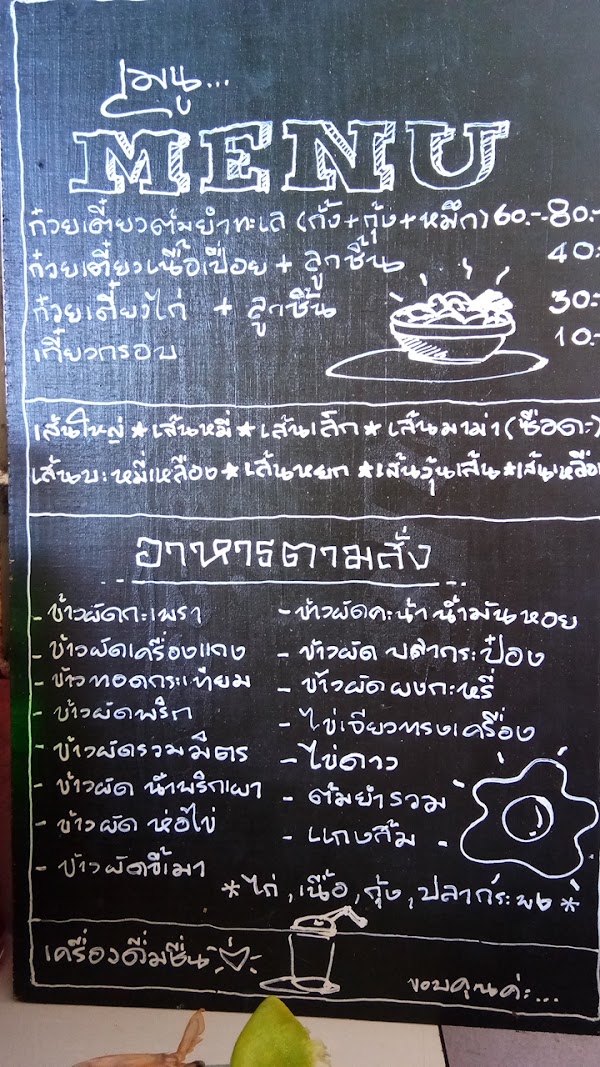 เมนู...
MENU
ก๋วยเตี๋ยวต้มยำทะเล (กั้ง+กุ้ง+หมึก) 60.-80.-
ก๋วยเตี๋ยวเนื้อเปื่อย + ลูกชิ้น 40.-
ก๋วยเตี๋ยวไก่ + ลูกชิ้น 30.-
เกี๊ยวกรอบ 10.-
เส้นใหญ่ * เส้นหมี่ * เส้นเล็ก * เส้นมาม่า (ซื่อดะ)
เส้นบะหมี่เหลือง * เส้นหยก * เส้นวุ้นเส้น *
อาหารตามสั่ง
- ข้าวผัดกะเพรา
- ข้าวผัดเครื่องแกง
- ข้าวทอดกระเทียม
- ข้าวผัดพริก
- ข้าวผัดรวมมิตร
- ข้าวผัด น้ำพริกเผา
- ข้าวผัด ห่อไข่
- ข้าวผัดขี้เมา
- ข้าวผัดคะน้า น้ำมันหอย
- ข้าวผัด ปลากระป๋อง
- ข้าวผัดผงกะหรี่
- ไข่เจียวทรงเครื่อง
- ไข่ดาว
- ต้มยำรวม
- แกงส้ม
* ไก่, เนื้อ, กุ้ง, ปลากระพง *
เครื่องดื่มชื่น
ขอบคุณค่ะ...